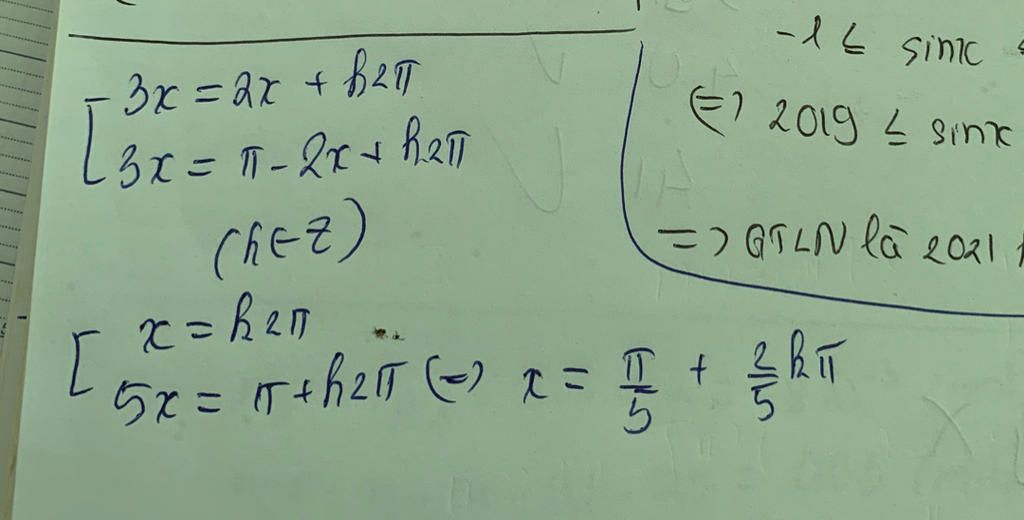 3x = 2x + k2π
3x = π - 2x + k2π
(k ∈ Z)
x = k2π
5x = π + k2π (=) x = π/5 + 2/5 kπ
-1 ≤ sinx ≤
(=) 2019 ≤ sinx
=) GTLN là 2021